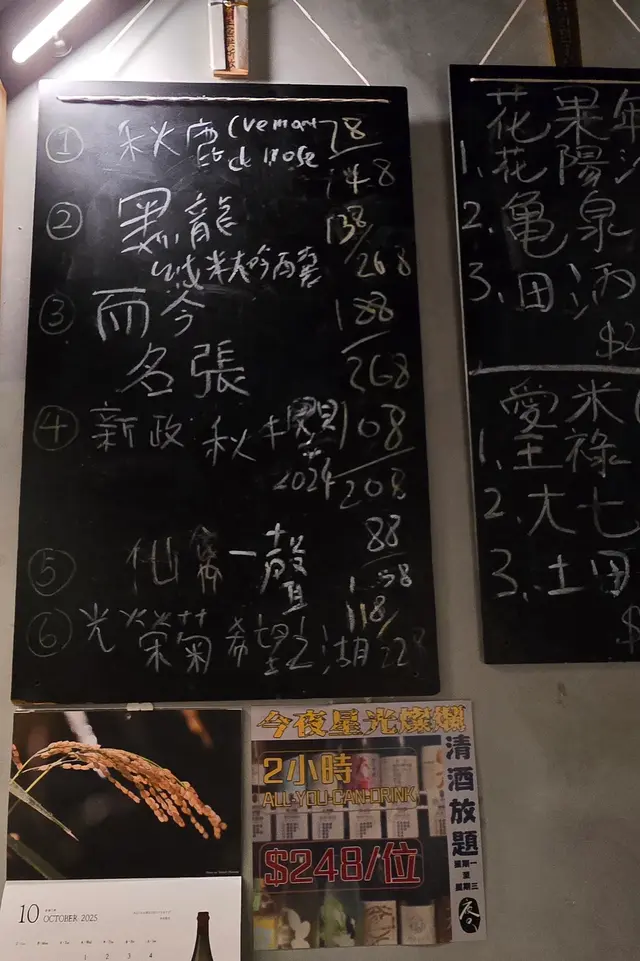 ① 秋鹿 (vemont
d rose
78
148
② 黒龍
138
純米大吟醸
268
③ 而今
188
名張
268
④ 新政 秋櫻
108
2024
208
88
⑤ 仙禽 一聲
118
⑥ 光栄菊 希望之湖
228
花果
1. 花陽
2. 亀泉
3. 田酒
愛米
1. 王祿
2. 大七
3. 土田
10 OCTOBER 2025
1 2 3 4
今夜星光燦爛
2小時
ALL-YOU-CAN-DRINK
$248/位
清酒放題
星期一
至
星期三